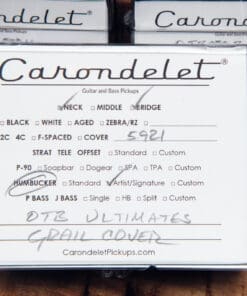 Carondelet®
Guitar and Bass Pickups
□NECK □MIDDLE □BRIDGE
□BLACK □WHITE □AGED □ZEBRA/RZ □
2C 4C □F-SPACED □COVER 5921
STRAT TELE OFFSET □Standard □Custom
P-90 □Soapbar □Dogear □SPA □TPA □Custom
HUMBUCKER □Standard □Artist/Signature □Custom
P BASS J BASS □Single □HB □Split □Custom
OTB ULTIMATES
GRAIL COVER
CarondeletPickups.com